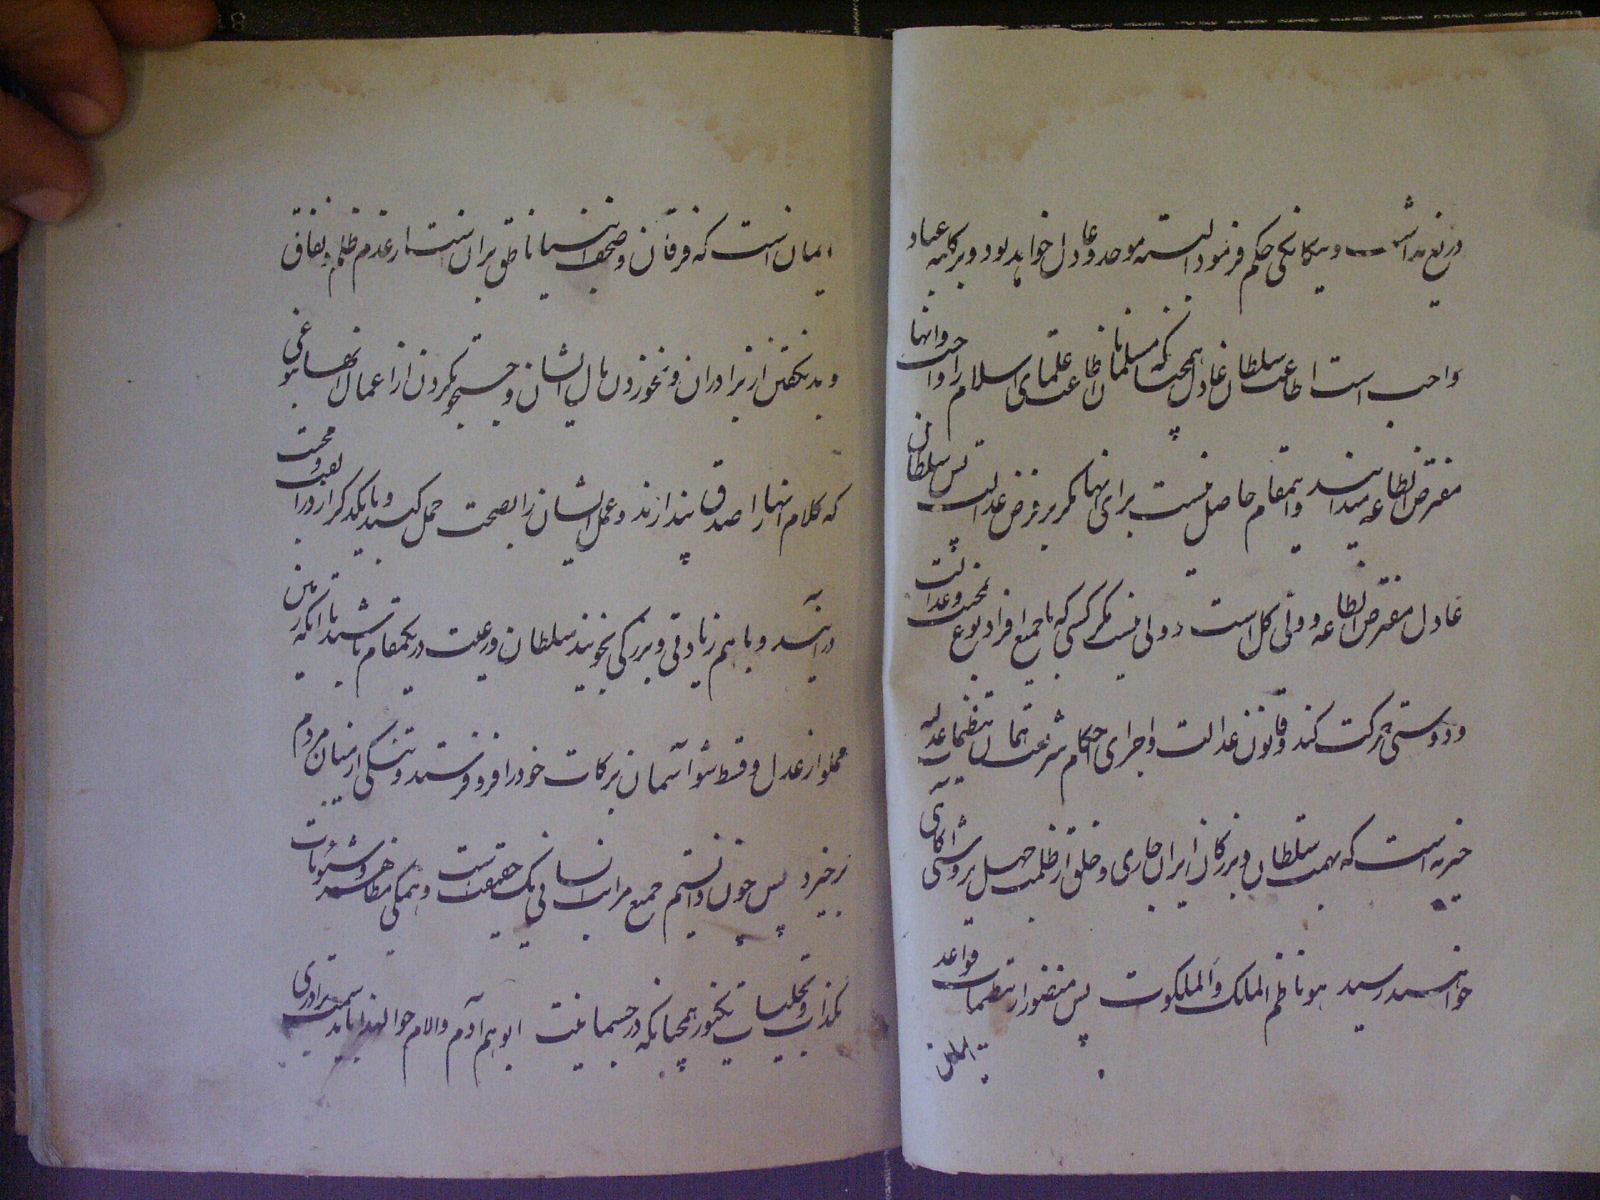 دریغ نداشت و بیگانگی حکم فرمود البته موحد و عادل خواهد بود و بر کلیه عباد
واجب است اطاعت سلطان عادل همچنانکه مسلمانان اطاعت علمای اسلام را واجب و آنها
مفترض الطاعه میدانند و اینمقام حاصل نیست برای آنها مگر بر فرض عدالت پس سلطان
عادل مفترض الطاعه و ولی کل است و ولی نیست مگر کسی که با جمیع افراد بنوع محبت و عدالت
و دوستی حرکت کند و قانون عدالت و اجرای احکام شرعیت همان تنظیمات عدلیه
خیریه است که بهمت سلطان و بزرگان ایران جاری و خلق از ظلمت جهل بروشنائی آگاهی
خواهند رسید هو ناظم الملک والملکوت پس منظور از تنظیمات قواعد
ایمان
ایمان است که فرقان و صحف انبیا ناطق بر آن است از عدم ظلم و نفاق
و بد نگفتن از برادران و نخوردن مال ایشان و جستجو نکردن از اعمال آنها بنوعی
که کلام آنها را صدق پندارند و عمل ایشان را بصحت حمل کنید و با یکدگر از در الفت و محبت
درآئید و با هم زیادتی و بزرگی نجوئید سلطان و رعیت در یکمقام باشید تا آنکه زمین
مملو از عدل و قسط شود آسمان برکات خود را فرو فرستد و تنگی از میان مردم
برخیزد پس چون دانستیم جمیع مراتب انسانی یک حقیقت است و همگی مظاهر و شئونات
یکذات و تجلیات یکنور همچنانکه در جسمانیت ابوهم آدم والام حوا لهذا باید بسمت برادری